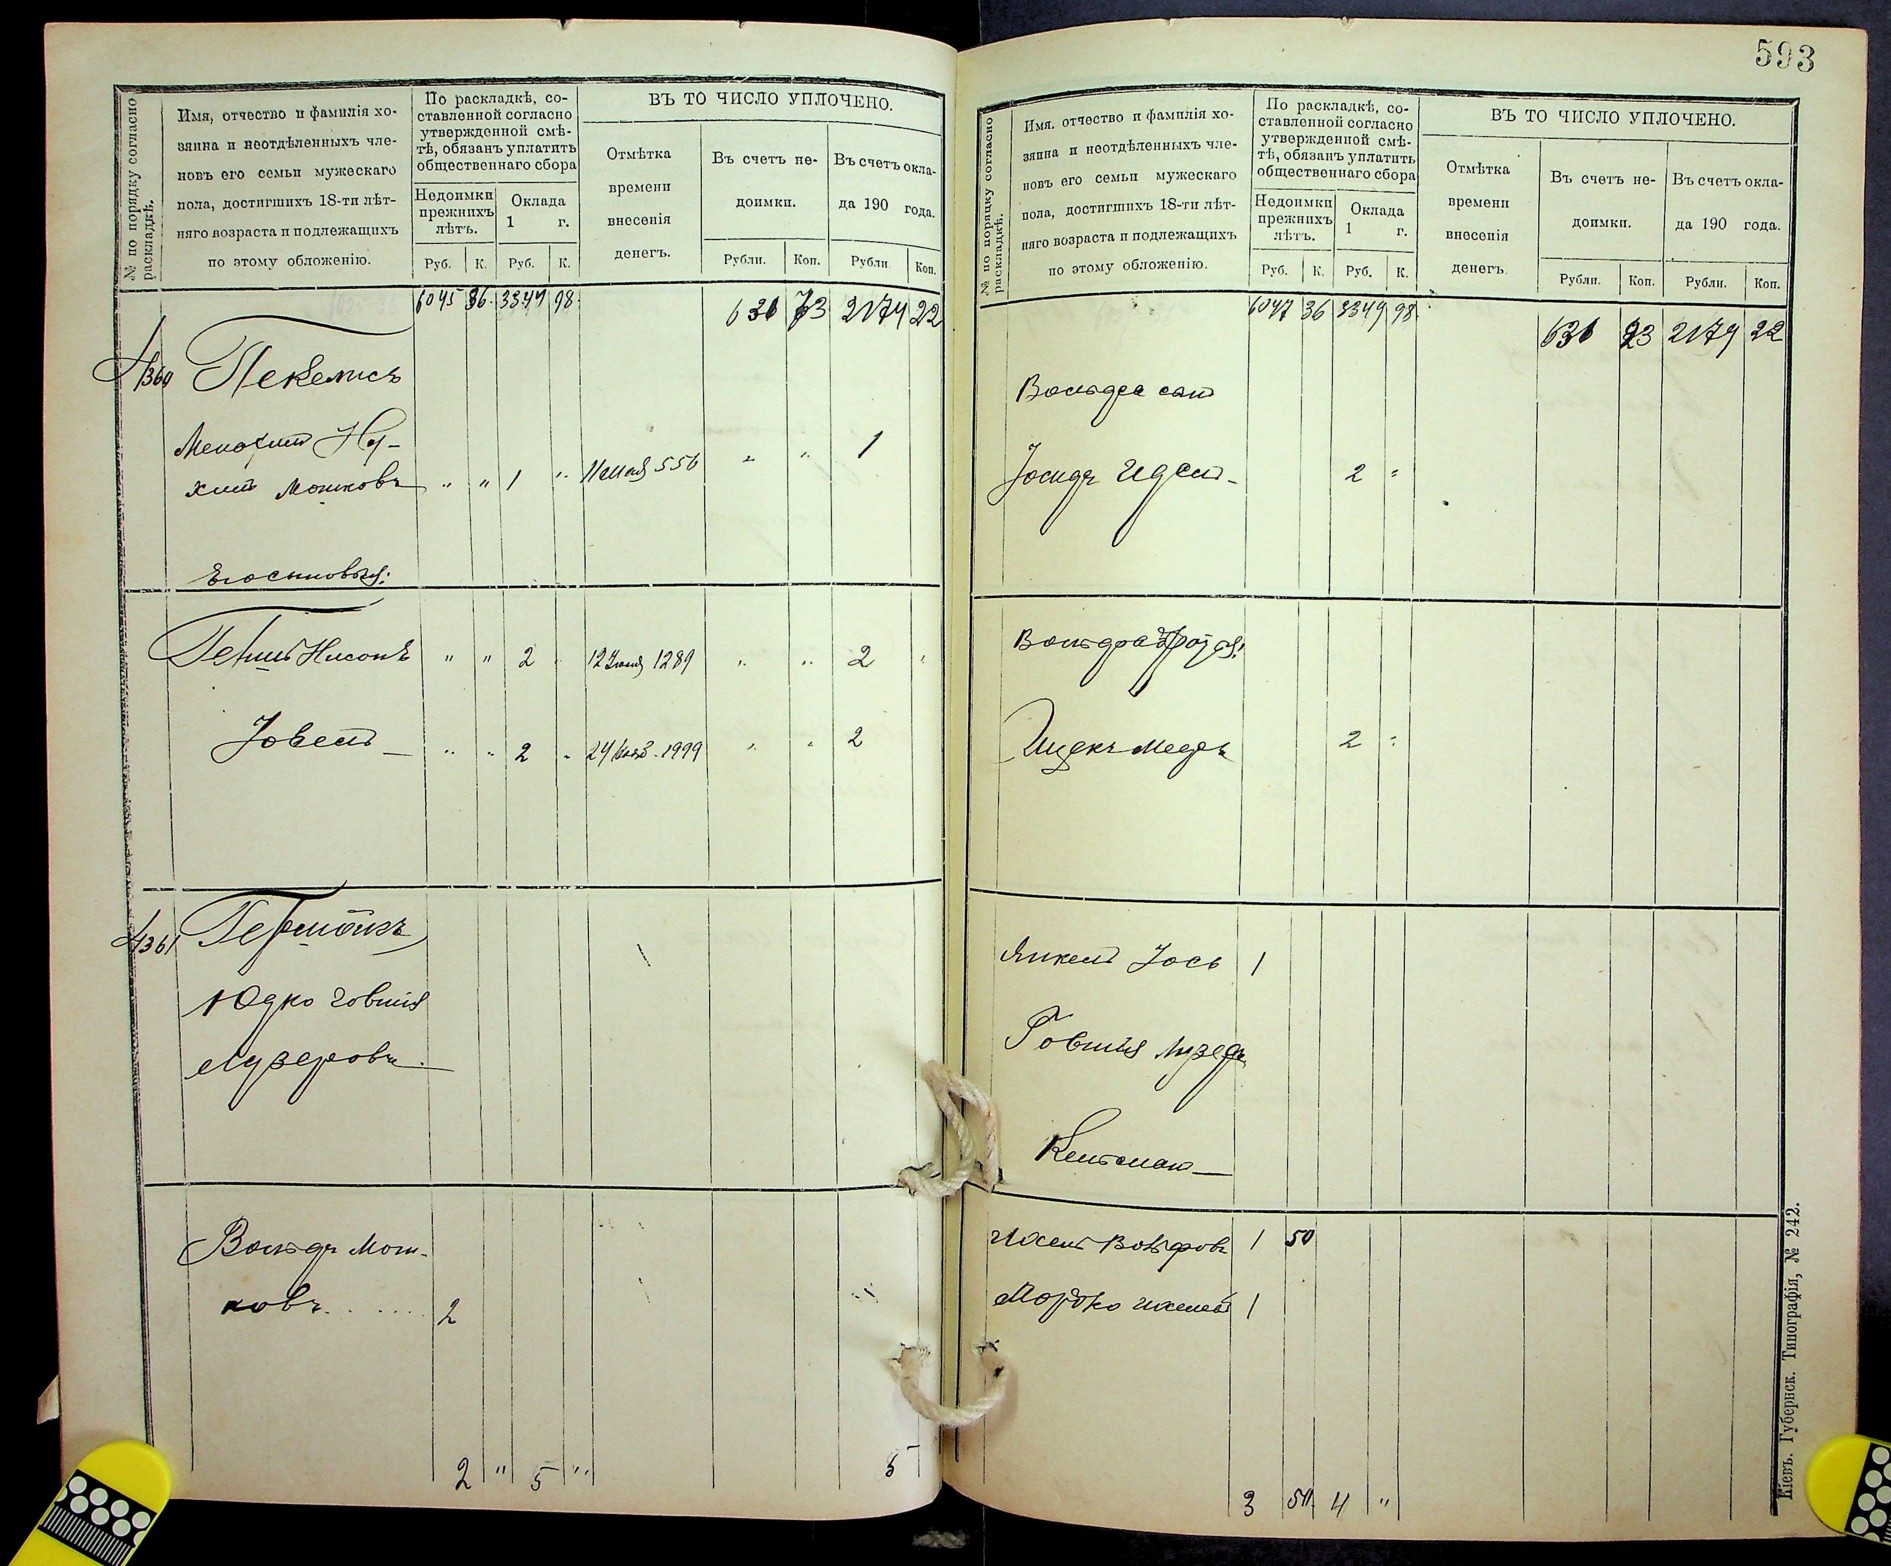 593
№ по порядку согласно раскладкѣ.
Имя, отчество и фамилія хо-
зяина и неотдѣленныхъ чле-
новъ его семьи мужескаго
пола, достигшихъ 18-ти лѣт-
няго возраста и подлежащихъ
по этому обложенію.
По раскладкѣ, со-
ставленной согласно
утвержденной смѣ-
тѣ, обязанъ уплатить
общественнаго сбора
Недоимки
прежнихъ
лѣтъ.
Оклада
1 г.
Руб. К. Руб. К.
ВЪ ТО ЧИСЛО УПЛОЧЕНО.
Отмѣтка
времени
внесенія
денегъ.
Въ счетъ не-
доимки.
Въ счетъ окла-
да 190 года.
Рубли. Коп. Рубли Коп.
6045 36 3349 98 631 73 2174 22
1360 Пекелисъ
Менахим Ну-
хим Мошковъ " " 1 " 11 мая 556 " " 1
Его сыновья:
Гершъ Нисонъ " " 2 " 12 Июня 1289 " " 2 "
Іовель " " 2 " 24 1999 " " 2
1361
Юдко Говшія
Лузеровъ
Вольфъ Мош-
ковъ 2
2 " 5 " 5
№ по порядку согласно раскладкѣ.
Имя, отчество и фамилія хо-
зяина и неотдѣленныхъ чле-
новъ его семьи мужескаго
пола, достигшихъ 18-ти лѣт-
няго возраста и подлежащихъ
по этому обложенію.
По раскладкѣ, со-
ставленной согласно
утвержденной смѣ-
тѣ, обязанъ уплатить
общественнаго сбора
Недоимки
прежнихъ
лѣтъ.
Оклада
1 г.
Руб. К. Руб. К.
ВЪ ТО ЧИСЛО УПЛОЧЕНО.
Отмѣтка
времени
внесенія
денегъ.
Въ счетъ не-
доимки.
Въ счетъ окла-
да 190 года.
Рубли. Коп. Рубли. Коп.
6047 36 3349 98 631 23 2179 22
Вольфа сын
Іосифъ 2 "
Вольфа
Ицекъ Меер 2 "
Янкель Іось 1
Говшія Лузеръ
Кельман
Ихель Вольфовъ 1 50
Мордко Ихелев 1
3 50 4 "
Кіевъ. Губернск. Типографія, № 242.